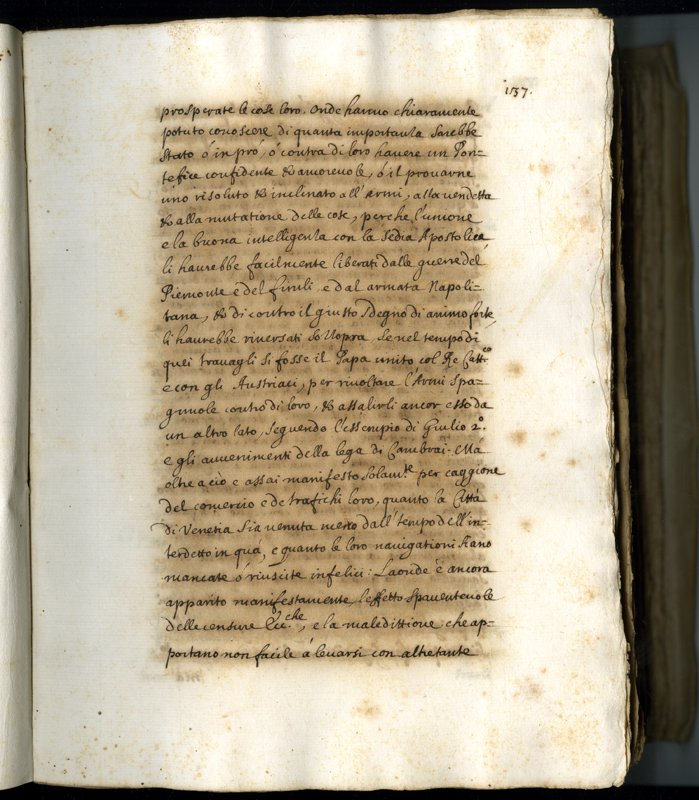 137.
prosperate le cose loro. Onde hanno chiaramente
potuto conoscere di quanta importanza sarebbe
stato ó in pró, ó contra di loro havere un Pon=
tefice confidente & amorevole, ó il provarne
uno risoluto & inclinato all'Armi, alla vendetta
& alla mutatione delle cose, perche l'unione
e la buona intelligenza con la Sedia Apostolica,
li haurebbe facilmente liberati dalle guerre del
Piemonte e del friuli e dal armata Napoli=
tana, & di contro il giusto sdegno di animo forte,
li haurebbe riversati sottopra se nel tempo di
quei travagli si fosse il Papa unito col Re Catt.co
e con gli Austriaci, per rivoltare l'Armi Spa=
gnuole contro di loro, & assalirli ancor esso da
un altro lato, seguendo l'essempio di Giulio 2.º
e gli avvenimenti della lega di Cambrai. Má
oltre a ció e assai manifesto solam.te per caggione
del comercio e de trafichi loro, quanto la Cittá
di Venetia sia venuta meno dall'tempo dell'in=
terdetto in quá, e quanto le loro navigationi siano
mancate ó riuscite infelici: Laonde é ancora
apparito manifestamente l'effetto spaventevole
delle censure Ecc.che, e la maledittione che ap=
portano non facile á levarsi con altretante